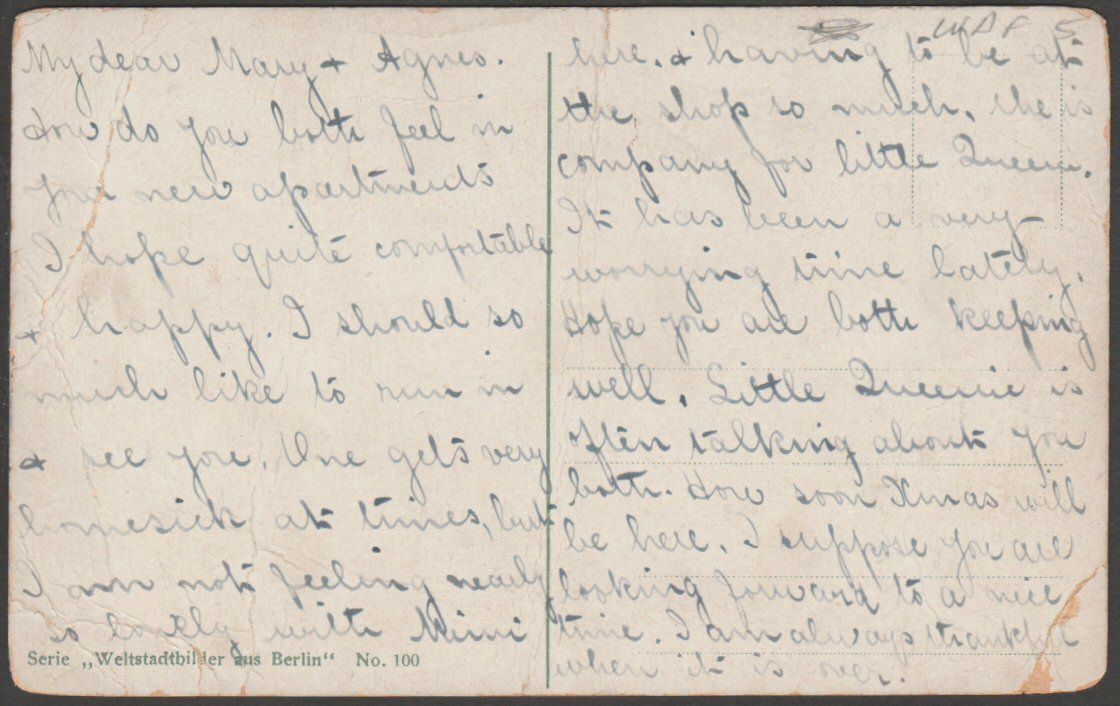 My dear Mary + Agnes.
How do you both feel in
your new apartments
I hope quite comfortable
+ happy. I should so
much like to run in
+ see you. One gets very
homesick at times, but
I am not feeling nearly
so lonely with Minni
Serie „Weltstadtbilder aus Berlin“ No. 100
5
here, + having to be at
the shop so much, she is
company for little Queenie.
It has been a very
worrying time lately.
Hope you are both keeping
well. Little Queenie is
often talking about you
both. How soon Xmas will
be here. I suppose you are
looking forward to a nice
time. I am always thankful
when it is over.